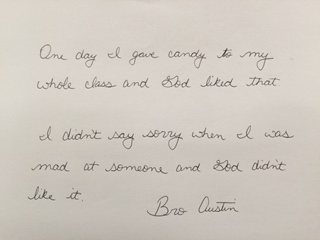 One day I gave candy to my
whole class and God liked that
I didn't say sorry when I was
mad at someone and God didn't
like it.
Bro Austin